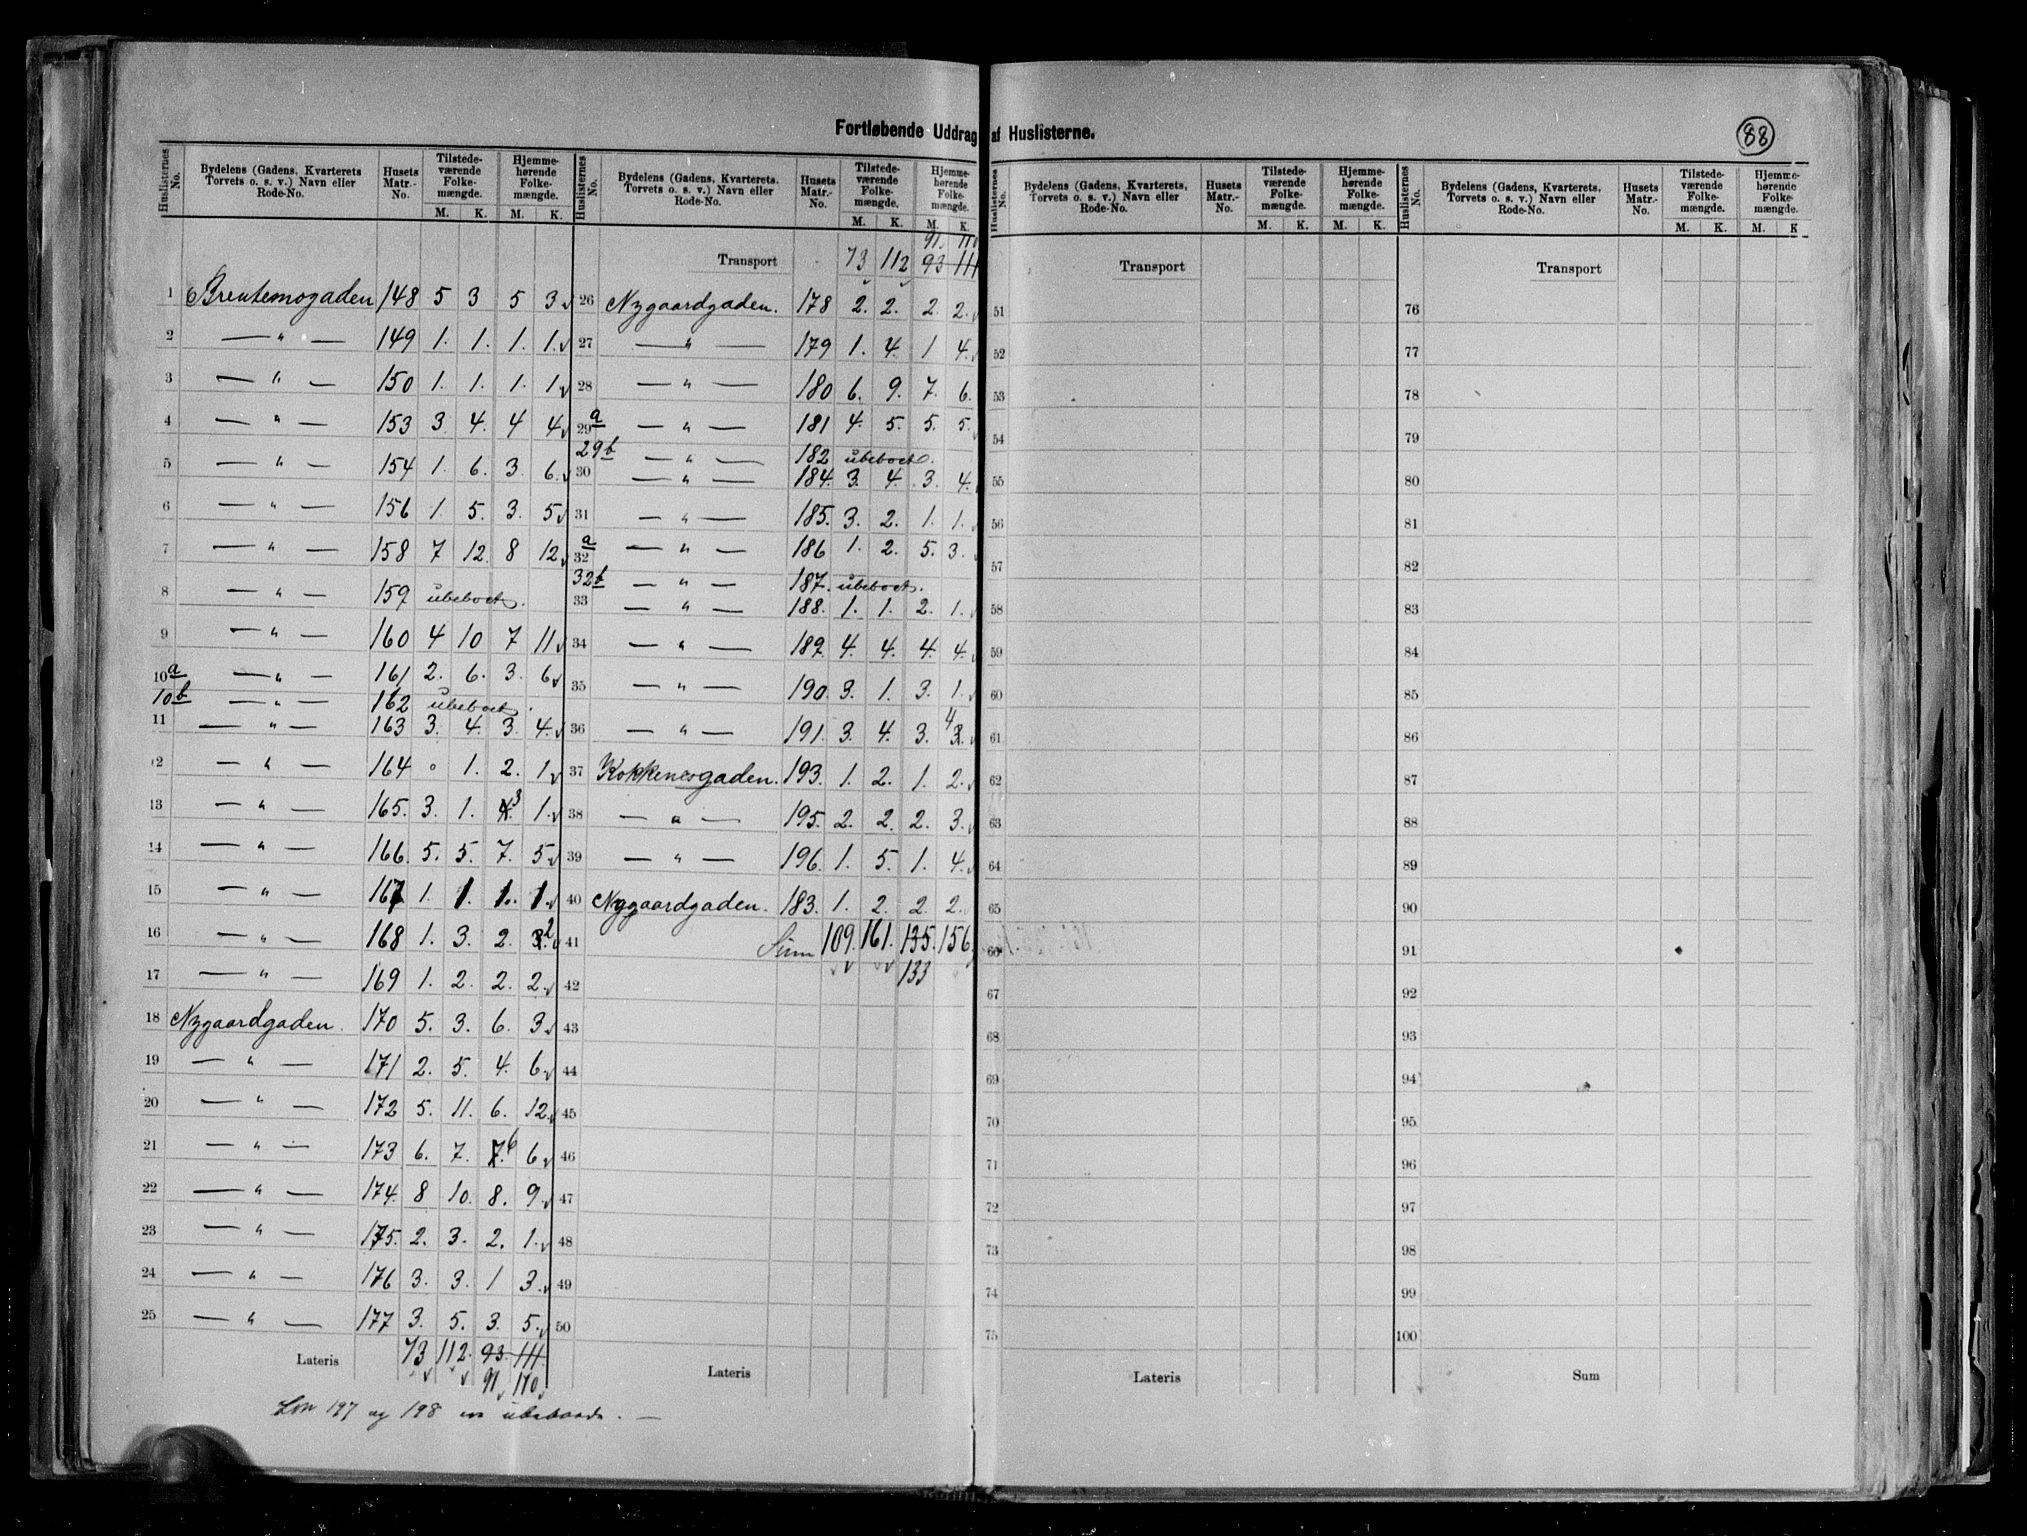 Fortløbende Uddrag af Huslisterne.
88
Huslisternes No. | Bydelens (Gadens, Kvarterets Torvets o. s. v.) Navn eller Rode-No. | Husets Matr.-No. | Tilstedeværende Folkemængde. M. K. | Hjemmehørende Folkemængde. M. K.
1 Brentemogaden 148 5 3 5 3
2 — " — 149 1. 1. 1. 1.
3 — " — 150 1. 1. 1. 1
4 — " — 153 3. 4. 4 4
5 — " — 154 1. 6. 3. 6.
6 — " — 156 1. 5. 3. 5
7 — " — 158 7 12. 8 12
8 — " — 159 ubeboet.
9 — " — 160 4 10 7 11
10a — " — 161 2. 6. 3. 6
10b — " — 162 ubeboet.
11 — " — 163 3. 4. 3. 4.
12 — " — 164 0 1. 2. 1
13 — " — 165. 3. 1. 4. 3 1.
14 — " — 166. 5. 5. 7. 5
15 — " — 167 1. 1. 1. 1.
16 — " — 168 1. 3. 2. 3. 2
17 — " — 169 1. 2. 2. 2.
18 Nygaardgaden. 170 5. 3. 6. 3
19 — " — 171 2. 5. 4. 6
20 — " — 172 5. 11. 6. 12
21 — " — 173 6. 7. 7. 6 6
22 — " — 174. 8 10. 8. 9
23 — " — 175. 2. 3. 2. 1.
24 — " — 176 3. 3. 1 3.
25 — " — 177 3. 5. 3. 5.
Lateris 73 112. 93. 111.
91 110
197 og 198 ubeboede.
Huslisternes No. | Bydelens (Gadens, Kvarterets, Torvets o. s. v.) Navn eller Rode-No. | Husets Matr.-No. | Tilstedeværende Folkemængde. M. K. | Hjemmehørende Folkemængde. M. K.
91. 110
Transport 73 112 93 111
26 Nygaardgaden. 178 2. 2. 2. 2.
27 — " — 179 1. 4. 1 4.
28 — " — 180 6. 9. 7. 6.
29a — " — 181 4. 5. 5. 5.
29b — " — 182 ubeboet.
30 — " — 184. 3. 4. 3. 4.
31 — " — 185. 3. 2. 1. 1.
32a — " — 186 1. 2. 5. 3.
32b — " — 187. ubeboet.
33 — " — 188. 1. 1. 2. 1.
34 — " — 189. 4. 4. 4. 4.
35 — " — 190. 3. 1. 3. 1.
36 — " — 191. 3. 4. 3. 4 3.
37 Kokkenesgaden. 193. 1. 2. 1. 2.
38 — " — 195. 2. 2. 2. 3.
39 — " — 196. 1. 5. 1. 4.
40 Nygaardgaden. 183. 1. 2. 2. 2.
41 Sum 109. 161. 135. 156.
133
42
43
44
45
46
47
48
49
50
Lateris
Huslisternes No. | Bydelens (Gadens, Kvarterets, Torvets o. s. v.) Navn eller Rode-No. | Husets Matr.-No. | Tilstedeværende Folkemængde. M. K. | Hjemmehørende Folkemængde. M. K.
Transport
51
52
53
54
55
56
57
58
59
60
61
62
63
64
65
66
67
68
69
70
71
72
73
74
75
Lateris
Huslisternes No. | Bydelens (Gadens, Kvarterets, Torvets o. s. v.) Navn eller Rode-No. | Husets Matr.-No. | Tilstedeværende Folkemængde. M. K. | Hjemmehørende Folkemængde. M. K
Transport
76
77
78
79
80
81
82
83
84
85
86
87
88
89
90
91
92
93
94
95
96
97
98
99
100
Sum